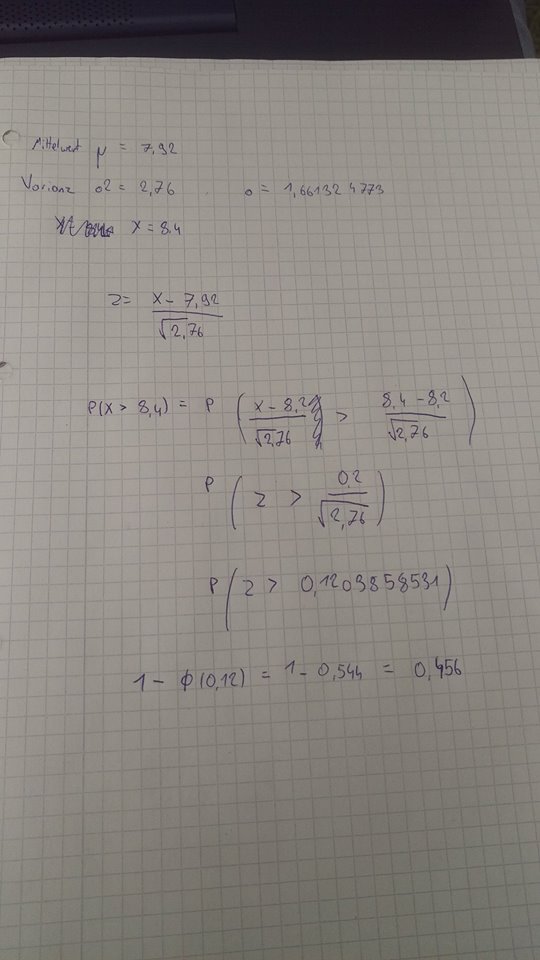 Mittelwert μ = 7,92
Varianz σ2 = 2,76 . σ = 1,661324773
X = 8.4
z = X - 7,92 / √2,76
P(X > 8,4) = P ( X - 8,2 / √2,76 > 8,4 - 8,2 / √2,76 )
P ( Z > 0,2 / √2,76 )
P ( Z > 0,1203858531 )
1 - ϕ(0,12) = 1 - 0,544 = 0,456